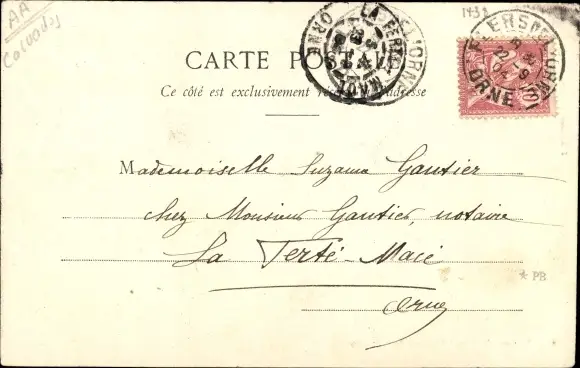 AA
Calvados
1432
CARTE POSTALE
Ce côté est exclusivement réservé à l'adresse
Mademoiselle Suzanne Gautier
chez Monsieur Gautier, notaire
La Ferté-Macé
Orne
* PB
LA FERTE-MACE
ORNE
FLERS
ORNE